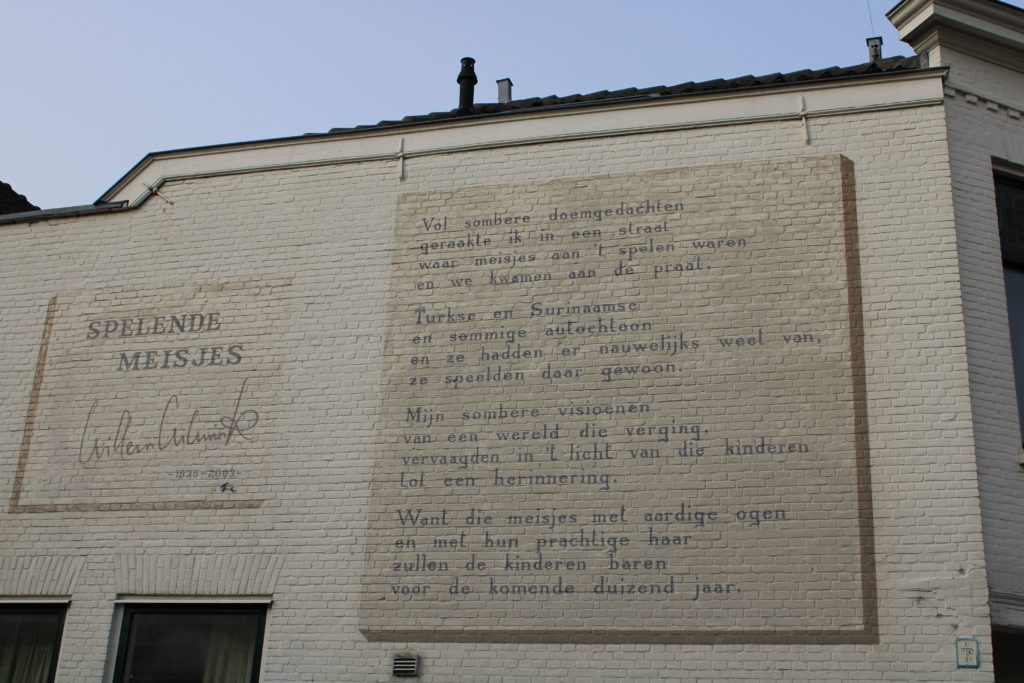 SPELENDE
MEISJES
Willem Wilmink
-1936-2003-
Vol sombere doemgedachten
geraakte ik in een straat
waar meisjes aan 't spelen waren
en we kwamen aan de praat.
Turkse en Surinaamse
en sommige autochtoon
en ze hadden er nauwelijks weet van,
ze speelden daar gewoon.
Mijn sombere visioenen
van een wereld die verging,
vervaagden in 't licht van die kinderen
tot een herinnering.
Want die meisjes met aardige ogen
en met hun prachtige haar
zullen de kinderen baren
voor de komende duizend jaar.